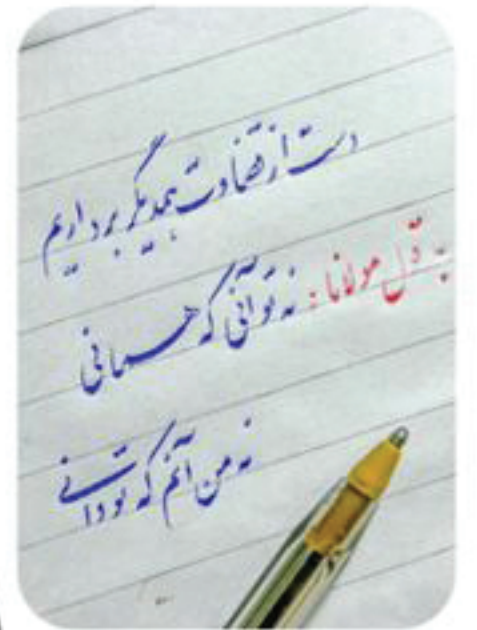 دست از قضاوت همدیگر برداریم
به قول مولانا: نه تو آنی که همانی
نه من آنم که تو دانی